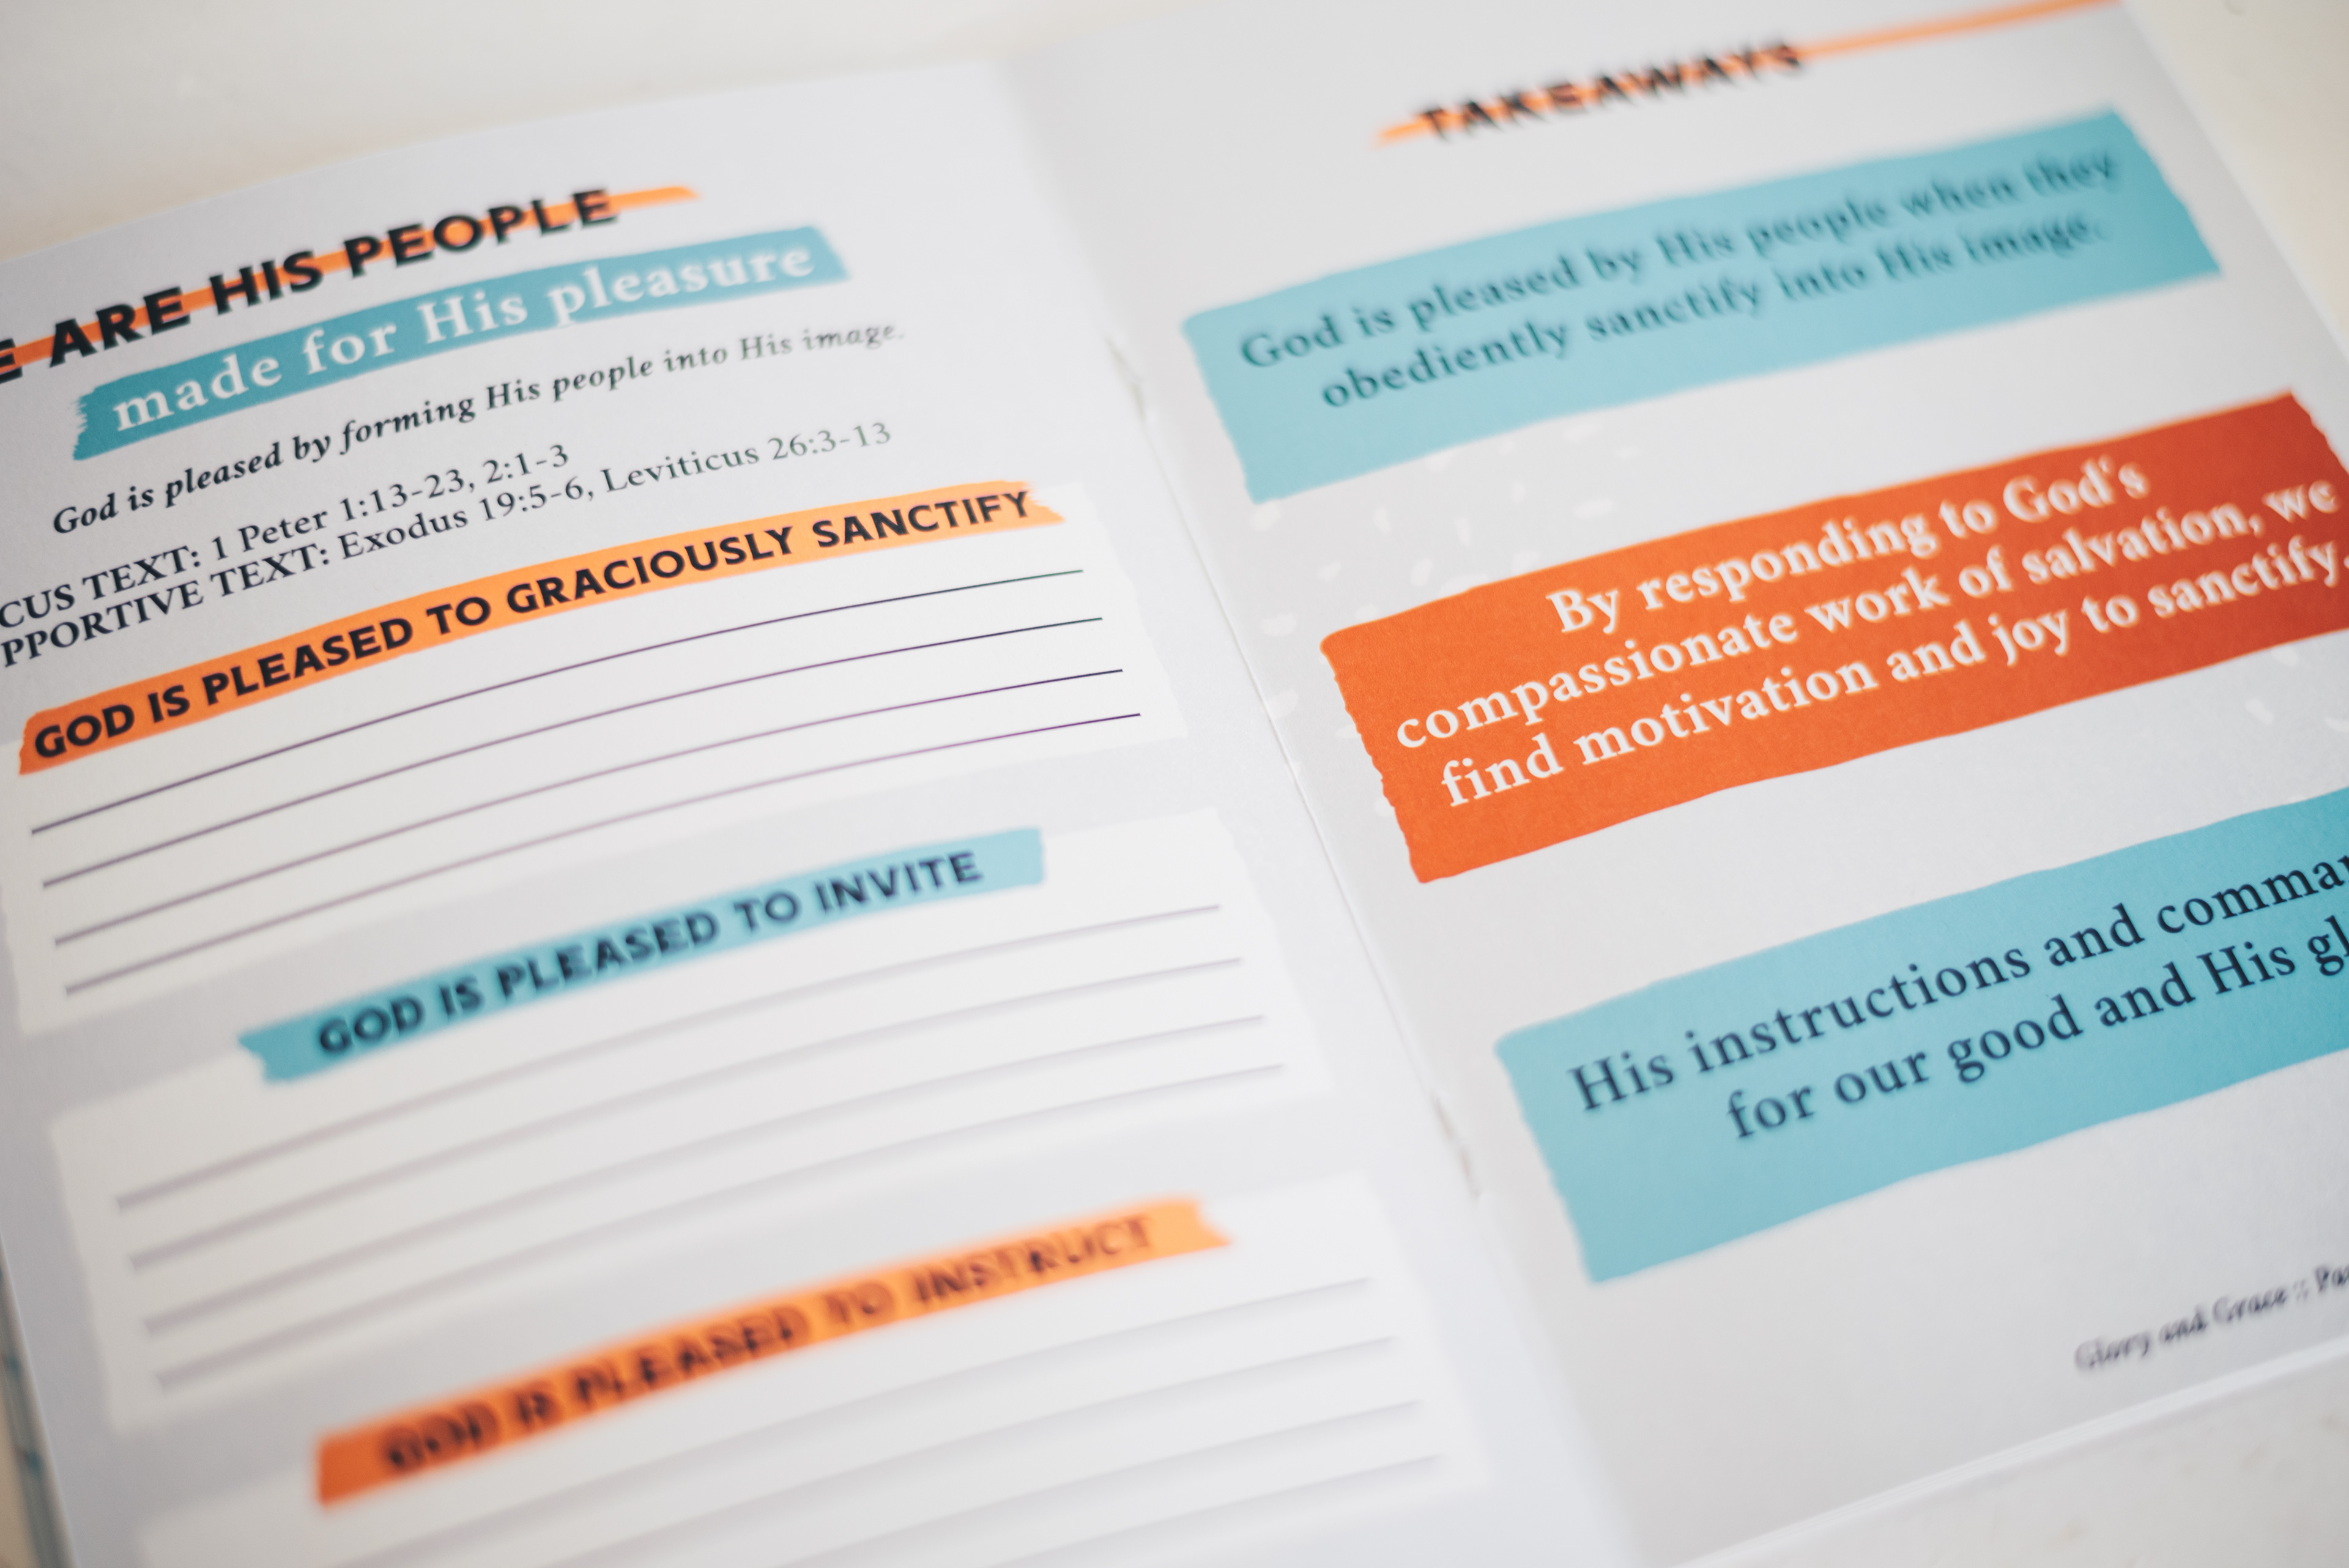 E ARE HIS PEOPLE
made for His pleasure
God is pleased by forming His people into His image.
CUS TEXT: 1 Peter 1:13-23, 2:1-3
PPORTIVE TEXT: Exodus 19:5-6, Leviticus 26:3-13
GOD IS PLEASED TO GRACIOUSLY SANCTIFY
GOD IS PLEASED TO INVITE
GOD IS PLEASED TO INSTRUCT
TAKEAWAYS
God is pleased by His people when they
obediently sanctify into His image.
By responding to God's
compassionate work of salvation, we
find motivation and joy to sanctify.
His instructions and comma
for our good and His gl
Glory and Grace :: Pa